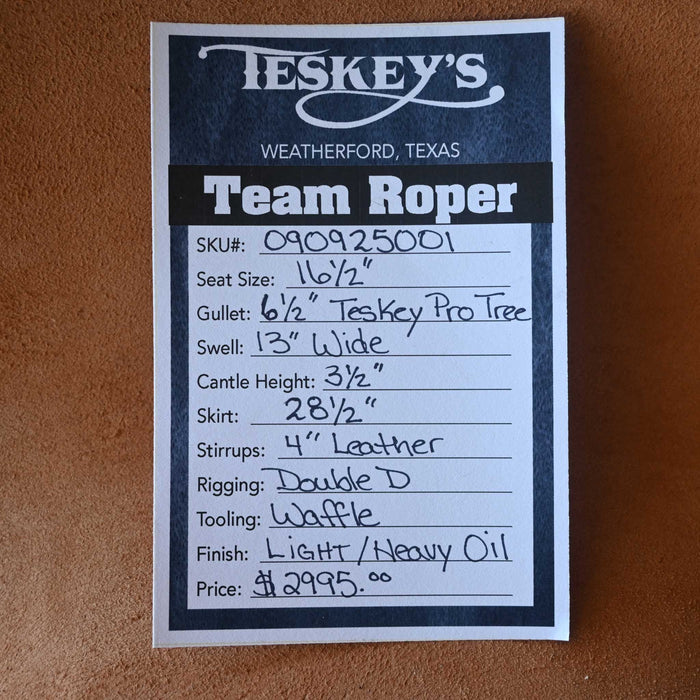 TESKEY'S
WEATHERFORD, TEXAS
Team Roper
SKU#: 090925001
Seat Size: 16½"
Gullet: 6½" Teskey Pro Tree
Swell: 13" Wide
Cantle Height: 3½"
Skirt: 28½"
Stirrups: 4" Leather
Rigging: Double D
Tooling: Waffle
Finish: LIGHT/Heavy Oil
Price: $2995.00